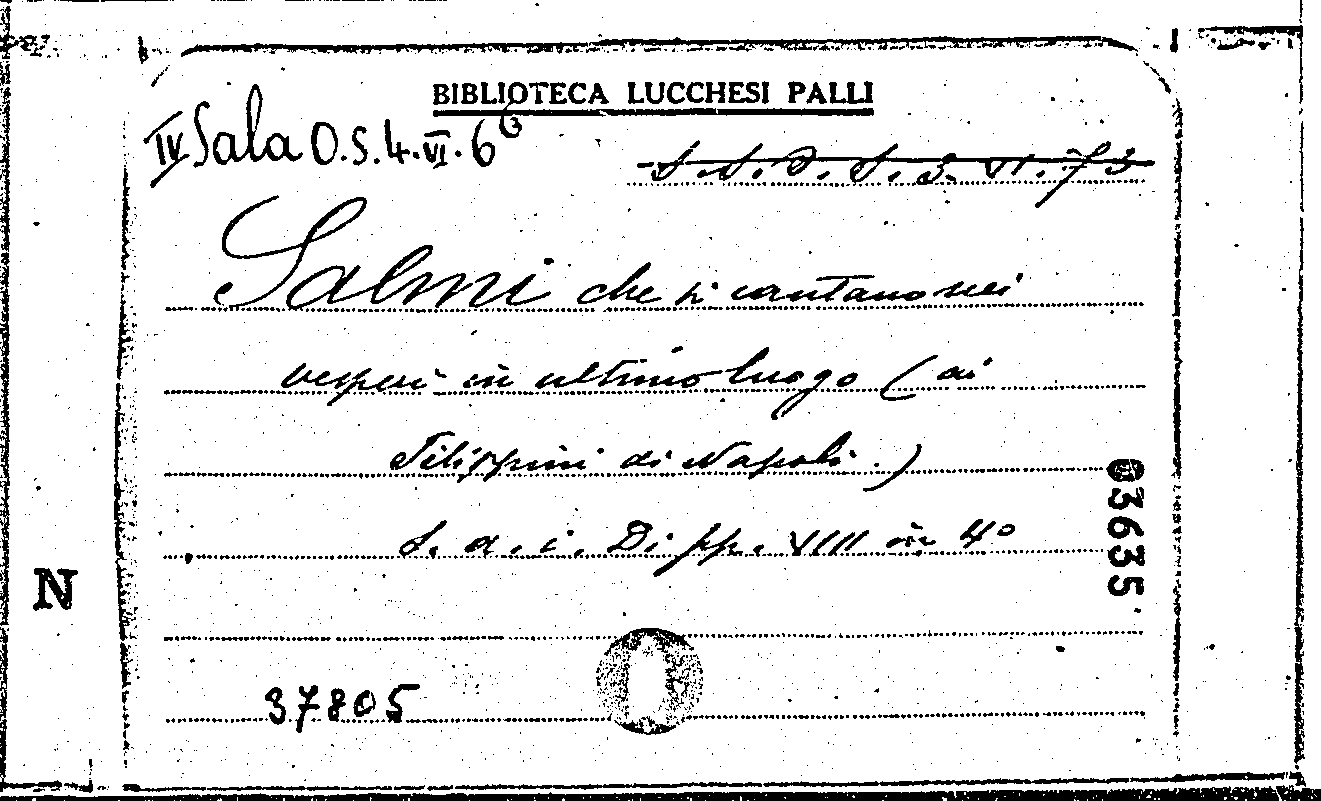 BIBLIOTECA LUCCHESI PALLI
IV Sala O.S.4.VI.6(3
S.S.O.S.3.VI.73
Salmi che si cantano nei
vesperi in ultimo luogo (ai
Filippini di Napoli.)
S. a. i. Di pp. VIII in 4°
03635
N
37805